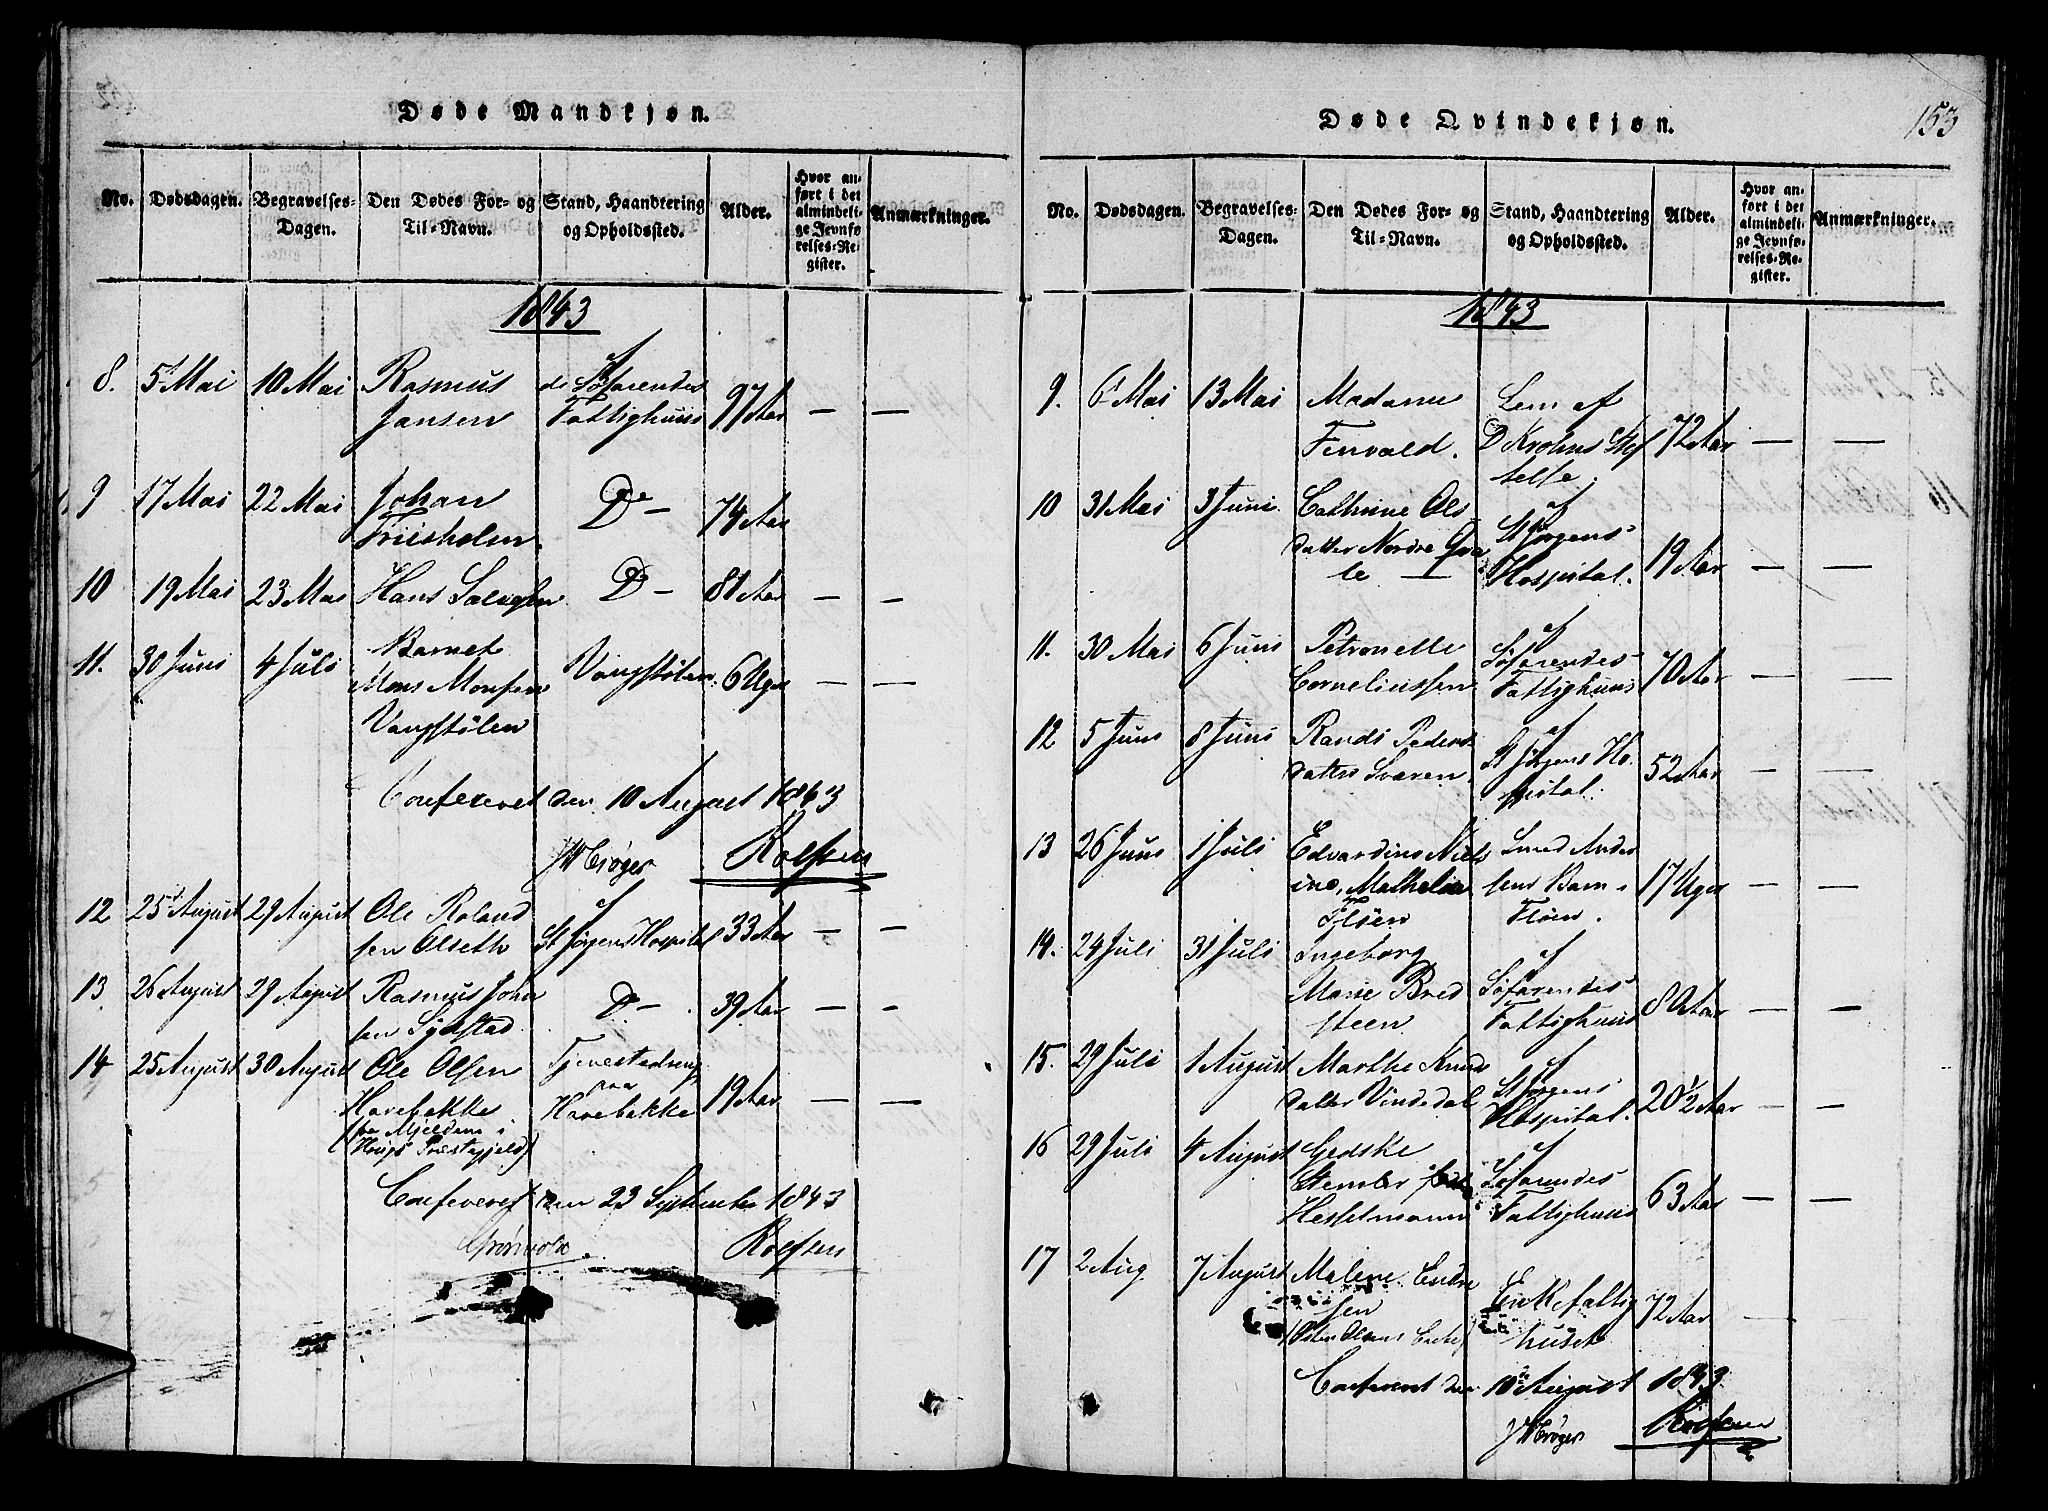 Døde Mandkjøn.
No. Dødsdagen. Begravelses-Dagen. Den Dødes For- og Til-Navn. Stand, Haandtering og Opholdssted. Alder. Hvor anført i det almindelige Jevnførelses-Register. Anmærkninger.
1843
8. 5 Mai 10 Mai Rasmus af
Jansen de Søfarendes
Fattighuus 97 Aar — —
9 17 Mai 22 Mai Johan Do —
Friisholm. 74 Aar
10 19 Mai 23 Mai Hans Do — 81 Aar — —
11. 30 Juni 4 Juli Barnet
Mons Monsen Vangstølen. 6 Uger — —
Vangstølen
Confereret den 10 August 1843
JW Crøger Rolfsen
12 25 August 29 August Ole Roland af
sen Olseth St Jørgens Hospital 33 Aar — —
13 26 August 29 August Rasmus Johan
sen Do — 39 Aar — —
14 25 August 30 August Ole Olsen Tjenestedreng
Havebakke paa
(fra Mjeldem i Havebakke 19 Aar — —
Hougs Præstegjeld)
Confereret den 23 September 1843
Grønvold Rolfsen
Døde Qvindekjøn.
153
No. Dødsdagen. Begravelses-Dagen. Den Dødes For- og Til-Navn. Stand, Haandtering og Opholdssted. Alder. Hvor anført i det almindelige Jevnførelses-Register. Anmærkninger.
1843
9. 6 Mai 13 Mai Madame Lem af
Fervald. D Krohns Stif
telse. 72 Aar — —
10 31 Mai 3 Juni Cathrine Ols af
datter Nordre Qva St Jørgens
le — Hospital. 19 Aar — —
11. 30 Mai 6 Juni Petronelle af
Corneliussen Søfarendes
Fattighuus 70 Aar — —
12 5 Juni 8 Juni Randi Peders af
datter Svaren. St Jørgens Ho
spital. 52 Aar — —
13 26 Juni 1 Juli Edvardine Niels
ine, Mathelia Anders
Fløen sens Barn
Fløen. 17 Uger — —
14. 24 Juli 31 Juli Ingeborg af
Marie Bred Søfarendes
steen Fattighuus 80 Aar — —
15. 29 Juli 1 August Marthe Knuds af
datter Vindedal St Jørgens
Hospital. 20 1/2 Aar — —
16 29 Juli 4 August Gedske af
Stemler født Søfarendes
Hesselmann Fattighuus 63 Aar — —
17 2 Aug 7 August Malene Endre Enkefattig
sen huset 72 Aar — —
Confereret den 10de August 1843
JW Crøger Rolfsen